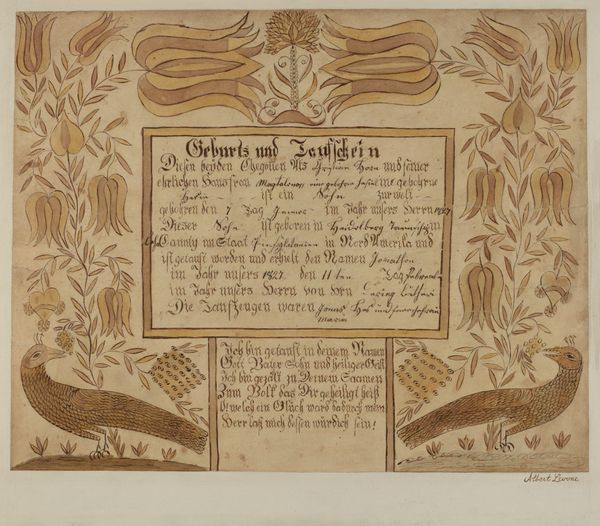 Geburts und Taufschein
Diesen beyden Ehegatten Als Christian Horn und seiner
ehrlichen Hausfrau Magdalena, eine geborne
ist ein Sohn zur welt
gebohren den 7 Tag Januar im Jahr unsers Herrn 1827
Dieser Sohn ist geboren in Heidelberg Taunschip in
Caunty im Staat Pinsylvanien in Nord Amerika und
ist getauft worden und erhelt den Namen Jonathan
im Jahr unsers 1827 den 11 ten Tag Februar
im Jahr unsers Herrn von Hrn
Die Taufzeugen waren Jonas
Maria
Ich bin getauft in deinem Namen
Gott Vater Sohn und heiliger Geist
Ich bin gezält zu Deinem Saamen
Zum Volk das Dir geheiligt heiß
O! welch ein Glück ward dadurch mein
Herr laß mich dessen würdich sein!
Albert Levone